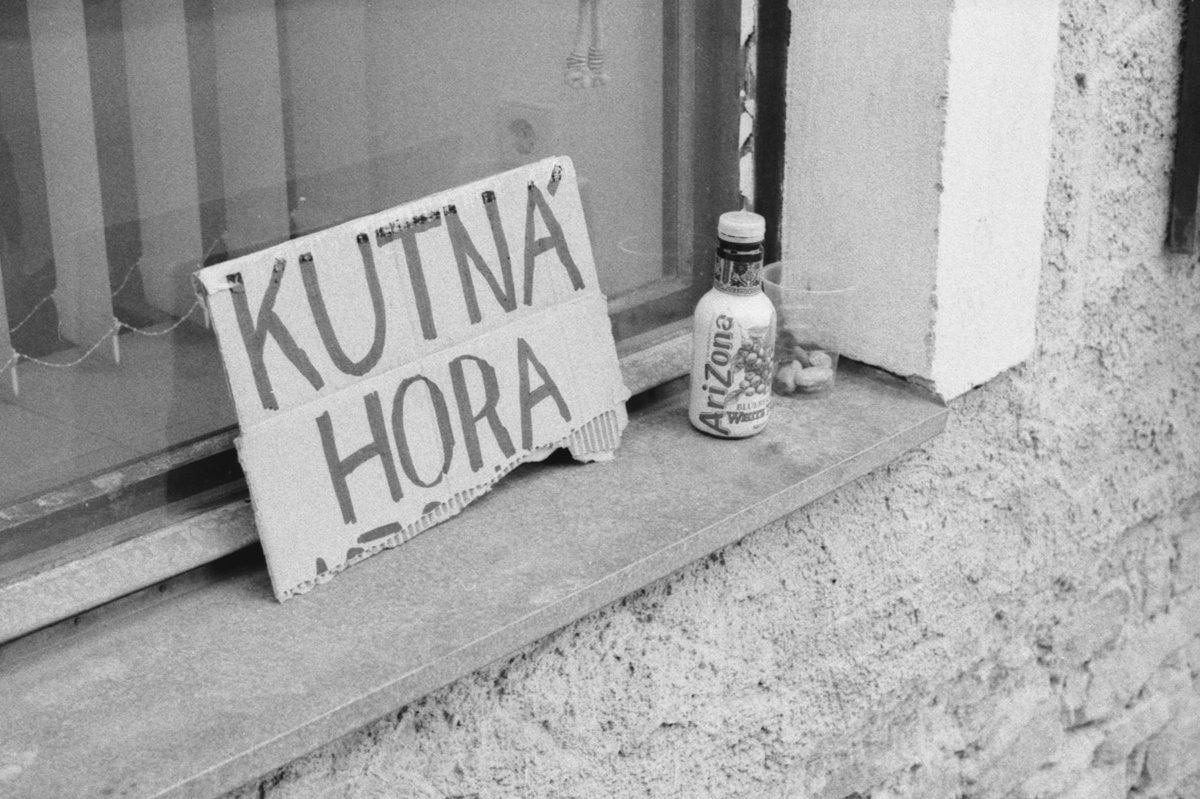 KUTNÁ
HORA
AriZona
BLUEB
WHITE